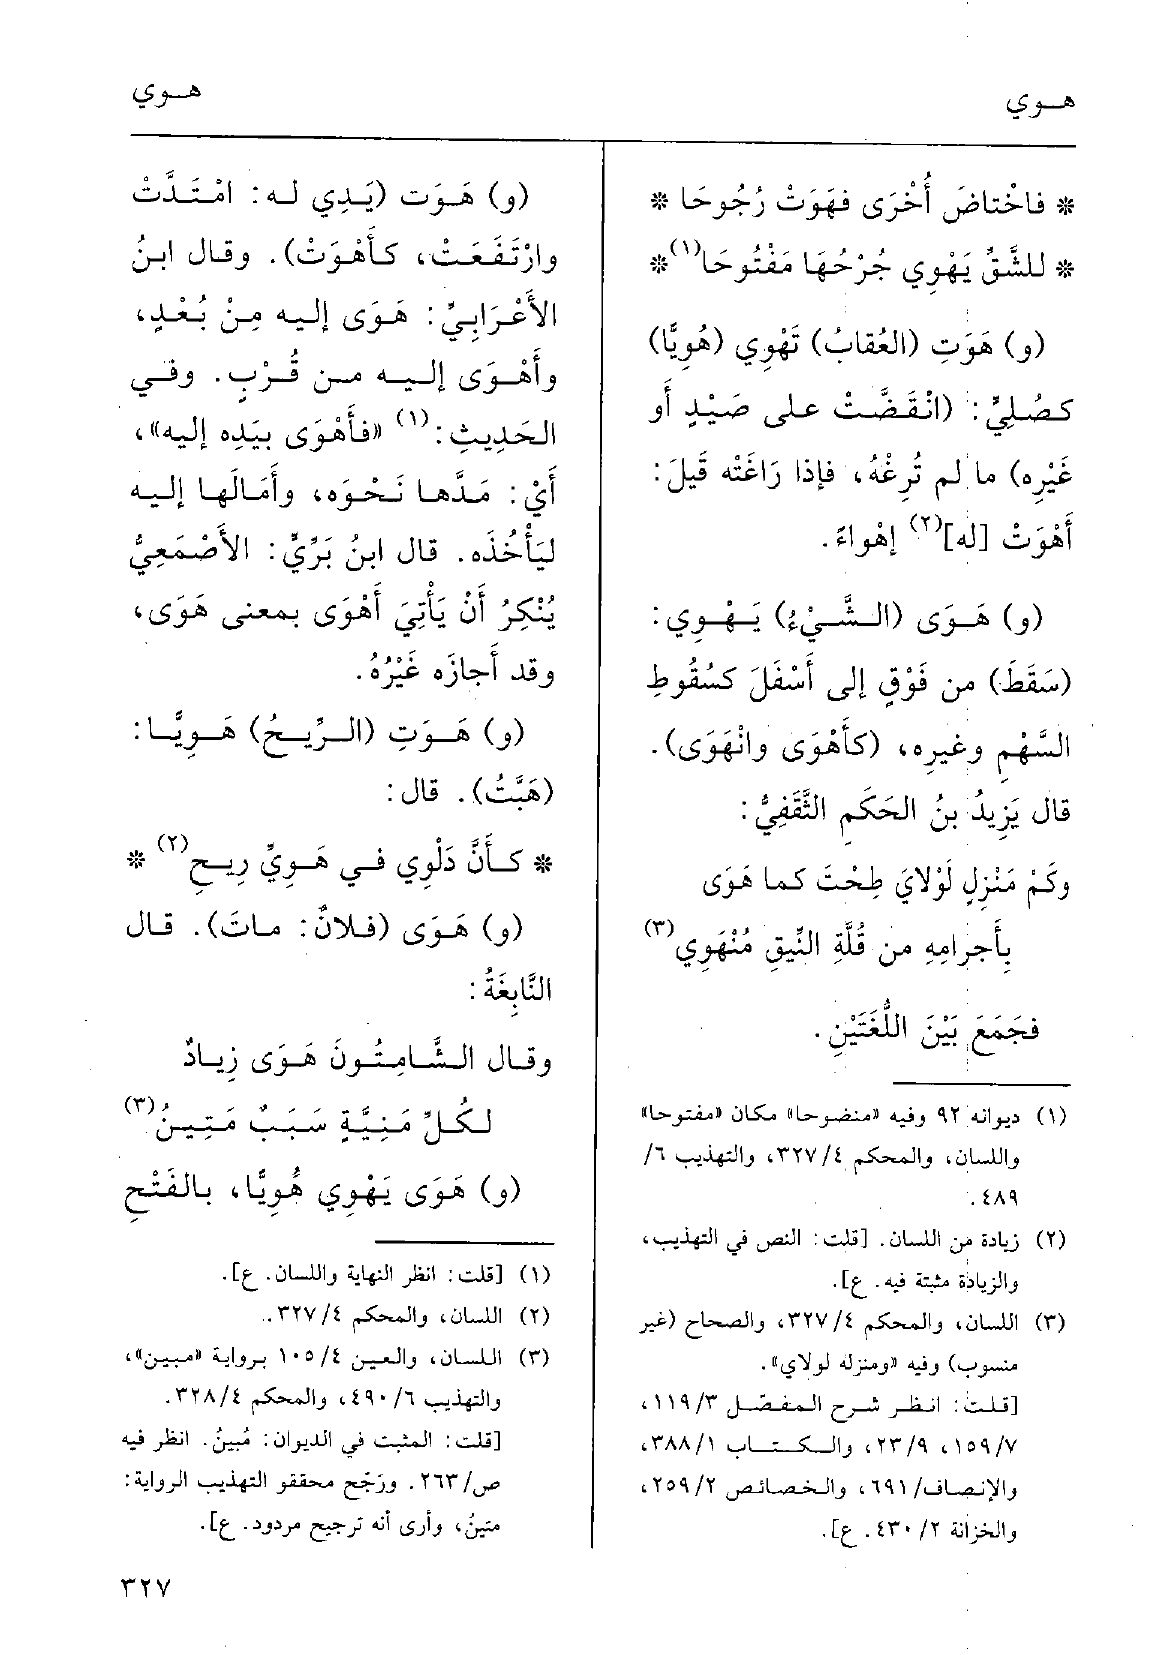 هـوي
هـوي
* فاخْتاضَ أُخْرَى فهَوَتْ رُجُوحَا *
* للشَّقِّ يَهْوِي جُرْحُهَا مَفْتُوحَا(١) *
(و) هَوَتِ (العُقابُ) تَهْوِي (هُوِيًّا)
كصُلِيٍّ: (انْقَضَّتْ على صَيْدٍ أَو
غَيْرِه) ما لم تُرِغْهُ، فإذا رَاغَتْه قيلَ:
أَهْوَتْ [له](٢) إهْواءً.
(و) هَوَى (الشَّيْءُ) يَهْوِي:
(سَقَطَ) من فَوْقٍ إلى أَسْفَلَ كسُقُوطِ
السَّهْمِ وغيرِه، (كأَهْوَى وانْهَوَى).
قال يَزِيدُ بنُ الحَكَمِ الثَّقَفِيُّ:
وكَمْ مَنْزِلٍ لَوْلايَ طِحْتَ كما هَوَى
بِأَجرامِهِ من قُلَّةِ النِّيقِ مُنْهَوِي(٣)
فجَمَعَ بَيْنَ اللُّغَتَيْنِ.
(١) ديوانه ٩٢ وفيه «منضوحا» مكان «مفتوحا»
واللسان، والمحكم ٣٢٧/٤، والتهذيب ٦/
٤٨٩.
(٢) زيادة من اللسان. [قلت: النص في التهذيب،
والزيادة مثبتة فيه. ع].
(٣) اللسان، والمحكم ٣٢٧/٤، والصحاح (غير
منسوب) وفيه «ومنزله لولاي».
[قلت: انظر شرح المفصّل ١١٩/٣،
١٥٩/٧، ٢٣/٩، والكتاب ٣٨٨/١،
والإنصاف/ ٦٩١، والخصائص ٢٥٩/٢،
والخزانة ٤٣٠/٢. ع].
(و) هَوَت (يَدِي له: امْتَدَّتْ
وارْتَفَعَتْ، كأَهْوَتْ). وقال ابنُ
الأَعْرَابِيِّ: هَوَى إليه مِنْ بُعْدٍ،
وأَهْوَى إليه من قُرْبٍ. وفي
الحَدِيثِ:(١) «فأَهْوَى بيَدِه إليه»،
أَيْ: مَدَّها نَحْوَه، وأَمَالَها إليه
ليَأْخُذَه. قال ابنُ بَرِّيٍّ: الأَصْمَعِيُّ
يُنْكِرُ أَنْ يَأْتِيَ أَهْوَى بمعنى هَوَى،
وقد أَجازَه غَيْرُهُ.
(و) هَوَتِ (الرِّيحُ) هَوِيًّا:
(هَبَّتْ). قال:
* كأَنَّ دَلْوِي في هَوِيِّ رِيحِ(٢) *
(و) هَوَى (فلانٌ: ماتَ). قال
النَّابِغَةُ:
وقال الشَّامِتُونَ هَوَى زِيادٌ
لكُلِّ مَنِيَّةٍ سَبَبٌ مَتِينُ(٣)
(و) هَوَى يَهْوِي هُوِيًّا، بالفَتْحِ
(١) [قلت: انظر النهاية واللسان. ع].
(٢) اللسان، والمحكم ٣٢٧/٤.
(٣) اللسان، والعين ١٠٥/٤ برواية «مبين»،
والتهذيب ٤٩٠/٦، والمحكم ٣٢٨/٤.
[قلت: المثبت في الديوان: مُبينُ. انظر فيه
ص/٢٦٣. ورَجّح محققو التهذيب الرواية:
متينُ، وأرى أنه ترجيح مردود. ع].
٣٢٧